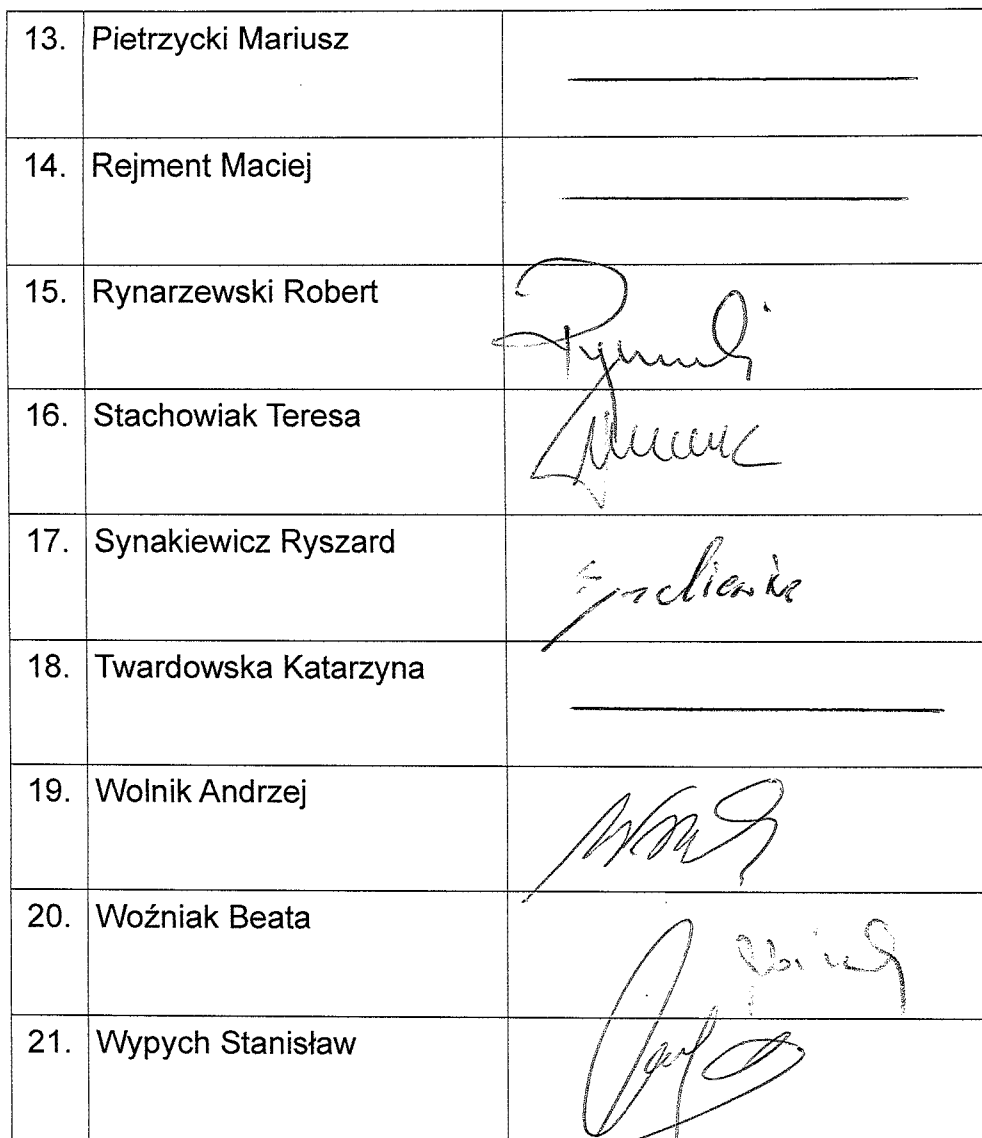 13. Pietrzycki Mariusz
14. Rejment Maciej
15. Rynarzewski Robert
16. Stachowiak Teresa
17. Synakiewicz Ryszard
18. Twardowska Katarzyna
19. Wolnik Andrzej
20. Woźniak Beata
21. Wypych Stanisław